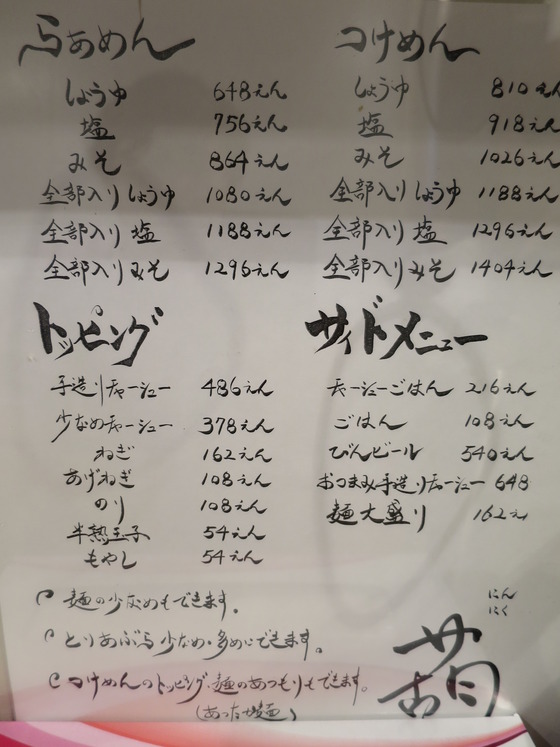 らあめん
しょうゆ 648えん
塩 756えん
みそ 864えん
全部入りしょうゆ 1080えん
全部入り塩 1188えん
全部入りみそ 1296えん
つけめん
しょうゆ 810えん
塩 918えん
みそ 1026えん
全部入りしょうゆ 1188えん
全部入り塩 1296えん
全部入りみそ 1404えん
トッピング
手造りチャーシュー 486えん
少なめチャーシュー 378えん
ねぎ 162えん
あげねぎ 108えん
のり 108えん
半熟玉子 54えん
もやし 54えん
サイドメニュー
チャーシューごはん 216えん
ごはん 108えん
びんビール 540えん
おつまみ手造りチャーシュー 648
麺大盛り 162えん
麺の少なめもできます。
とりあぶら少なめ・多めにできます。
つけめんのトッピング・麺のあつもりもできます。
(あったか麺)
にん
にく